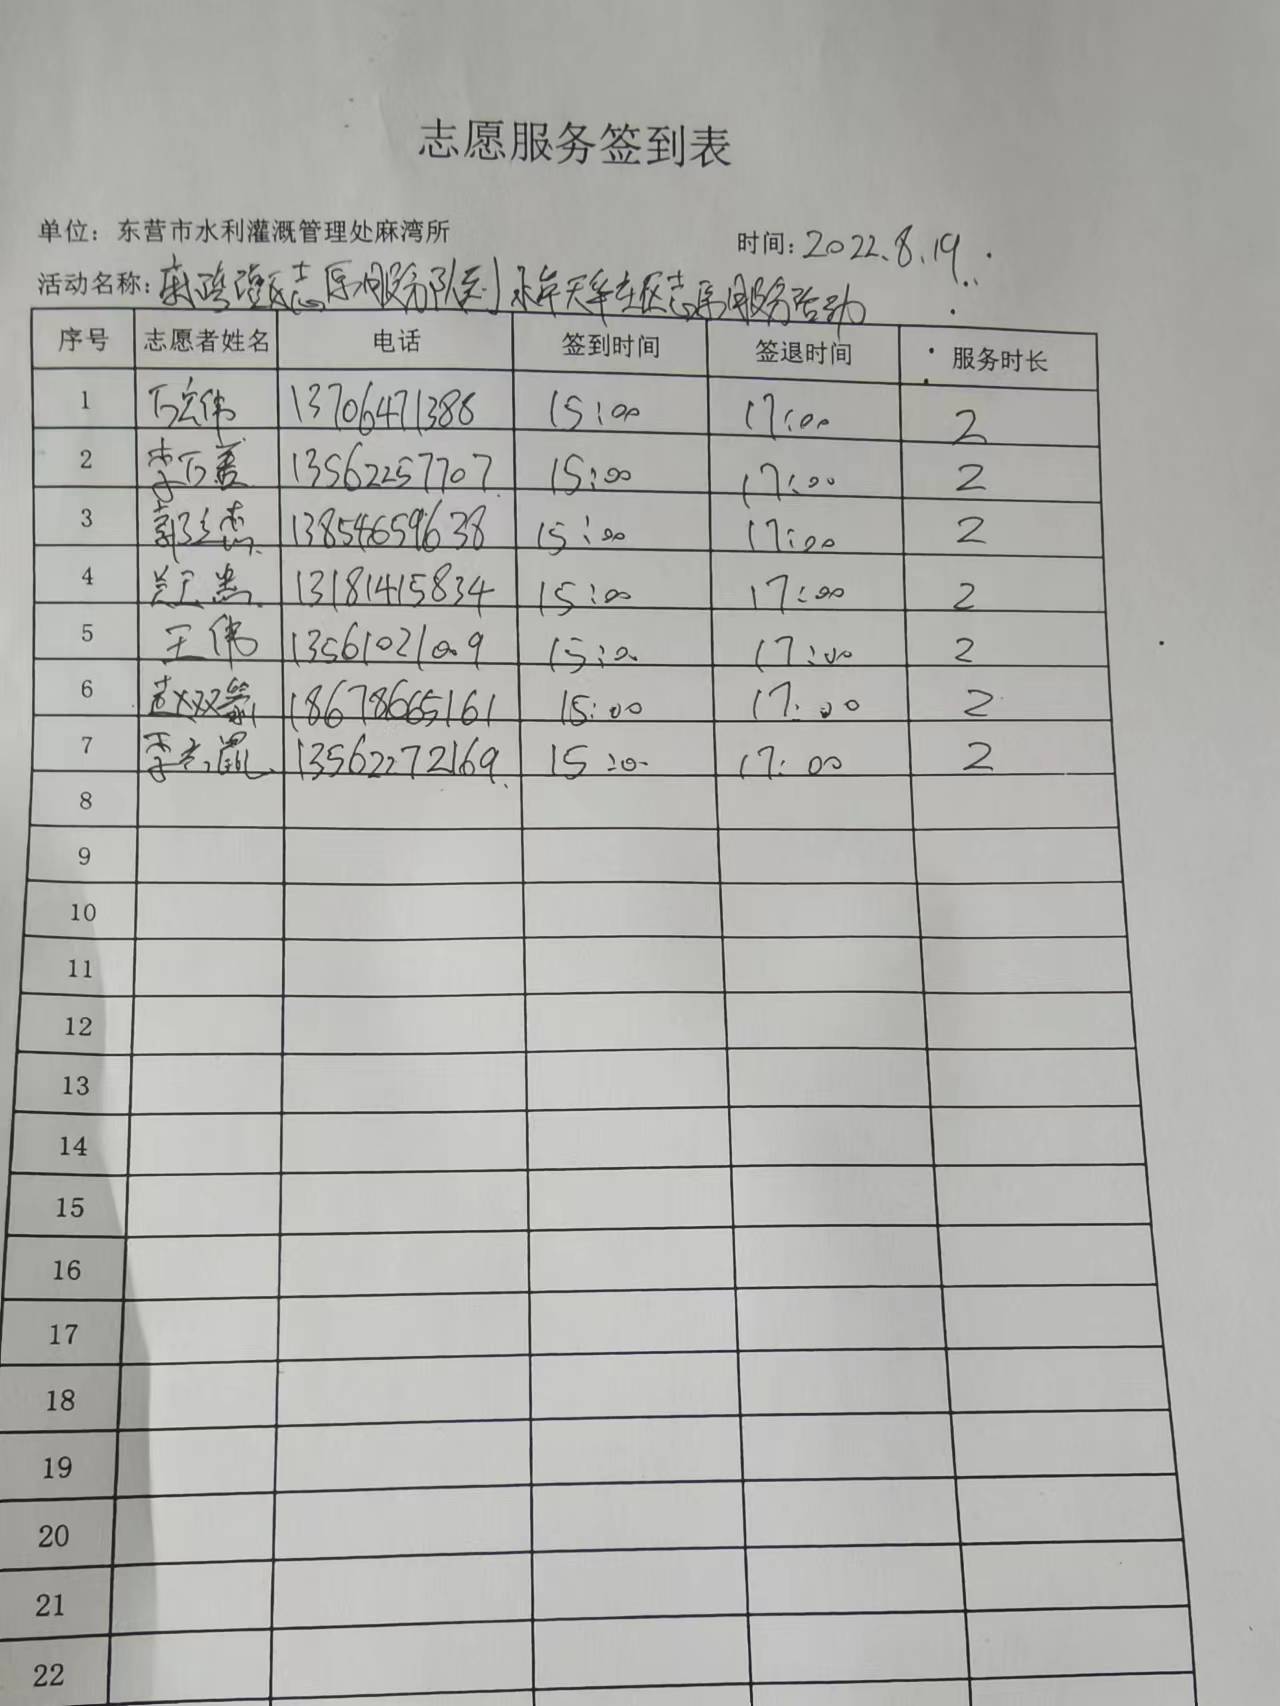 志愿服务签到表
单位：东营市水利灌溉管理处麻湾所
时间：2022.8.19
活动名称：麻湾灌区志愿服务队到 天华社区志愿服务活动
序号 志愿者姓名 电话 签到时间 签退时间 服务时长
1 13706471388 15:00 17:00 2
2 李万善 13562257707 15:00 17:00 2
3 13854659638 15:00 17:00 2
4 13181415834 15:00 17:00 2
5 王伟 13561021009 15:00 17:00 2
6 赵双 18678665161 15:00 17:00 2
7 李 13562272169 15:00 17:00 2
8
9
10
11
12
13
14
15
16
17
18
19
20
21
22